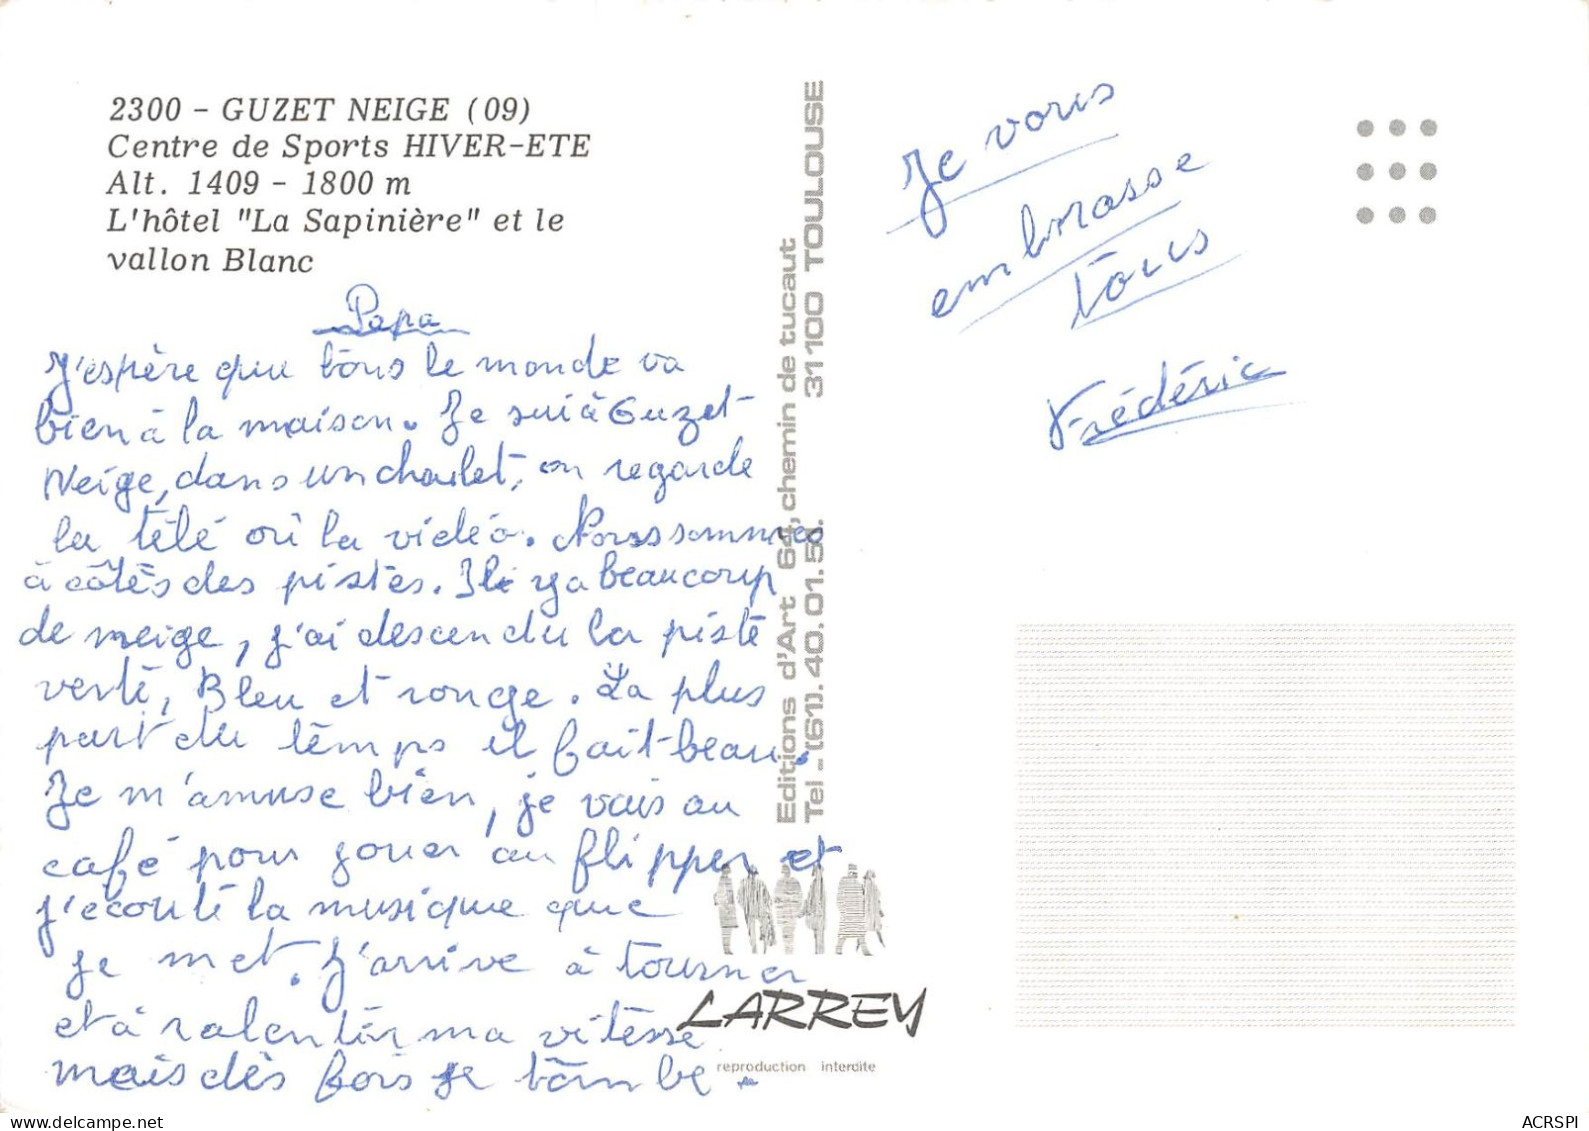 2300 - GUZET NEIGE (09)
Centre de Sports HIVER-ETE
Alt. 1409 - 1800 m
L'hôtel "La Sapinière" et le
vallon Blanc
Papa
J'espère que tous le monde va
bien à la maison. Je sui à Guzet-
Neige, dans un chalet, on regarde
la télé où la vidéo. Nous sommes
à côtés des pistes. Il y a beaucoup
de neige, j'ai descendu la piste
verte, Bleu et rouge. La plus
part du temps il fait beau.
Je m'amuse bien, je vais au
café pour jouer au flipper et
j'écoute la musique que
je met. J'arrive à tourner
et à ralentir ma vitesse
mais dès fois je tombe.
Editions d'Art 64, chemin de tucaut
Tel - (61). 40. 01. 51. 31100 TOULOUSE
LARREY
reproduction interdite
Je vous
embrasse
tous
Frédéric
delcampe.net
ACRSPI